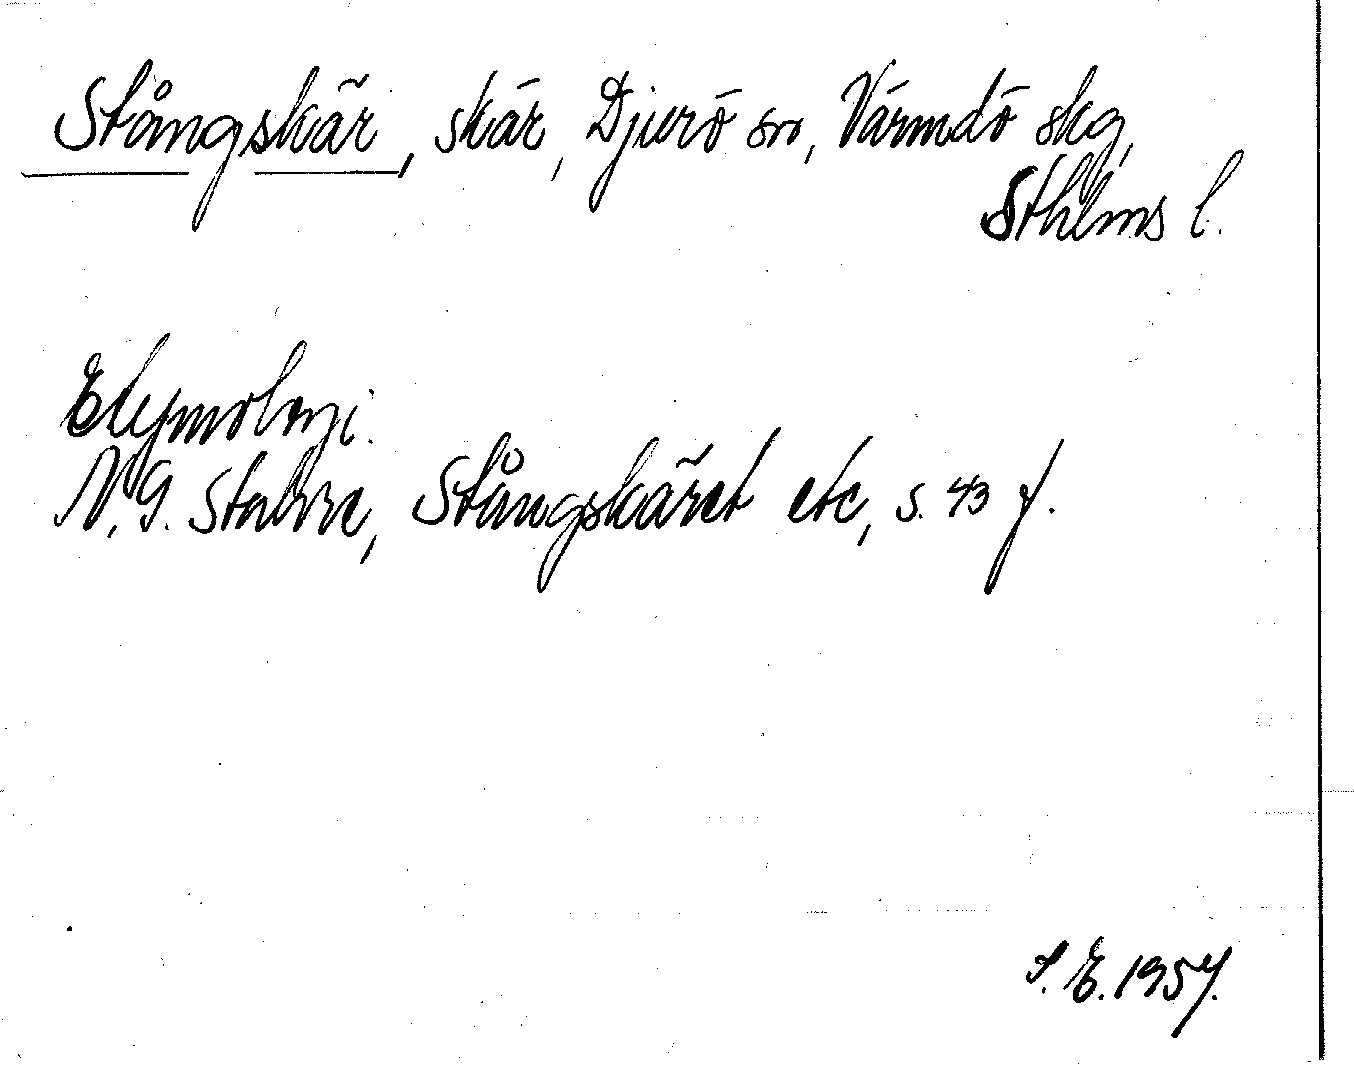 Stångskär, skär, Djurö sn, Värmdö skg,
Sthlms l.
Etymologi.
N. G. Stahre, Stångskäret etc, s. 43 f.
S. E. 1957.